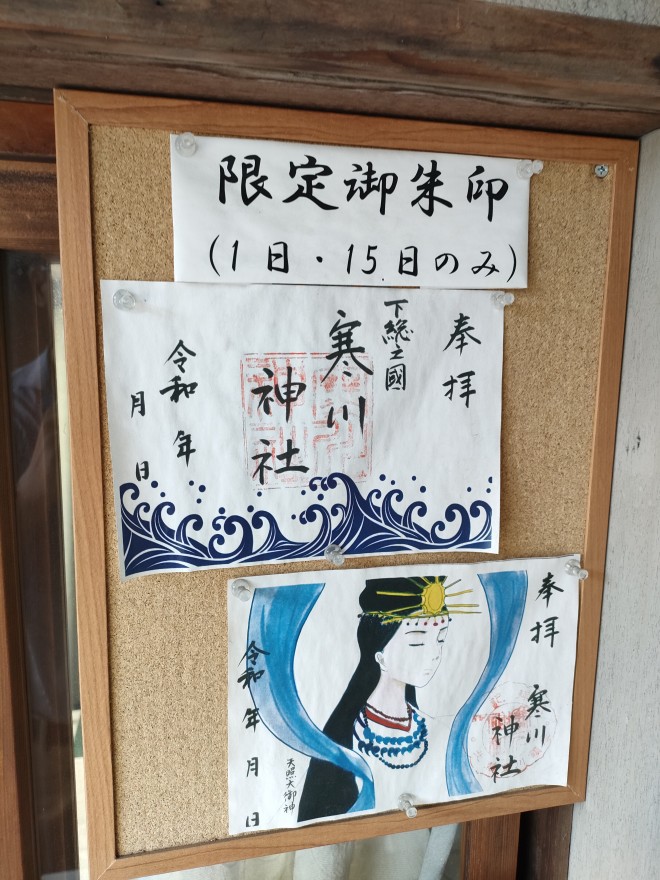 限定御朱印
(1日・15日のみ)
奉拝
下総之國
寒川
神社
令和 年
月 日
奉拝
寒川
神社
天照大御神
令和 年 月 日